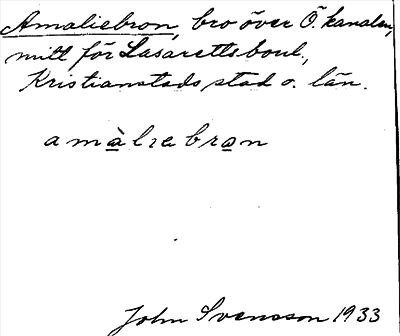 Amaliebron, bro över Ö. kanalen,
mitt för Lasarettsboul.,
Kristianstads stad o. län.
amàlıebron
John Svensson 1933